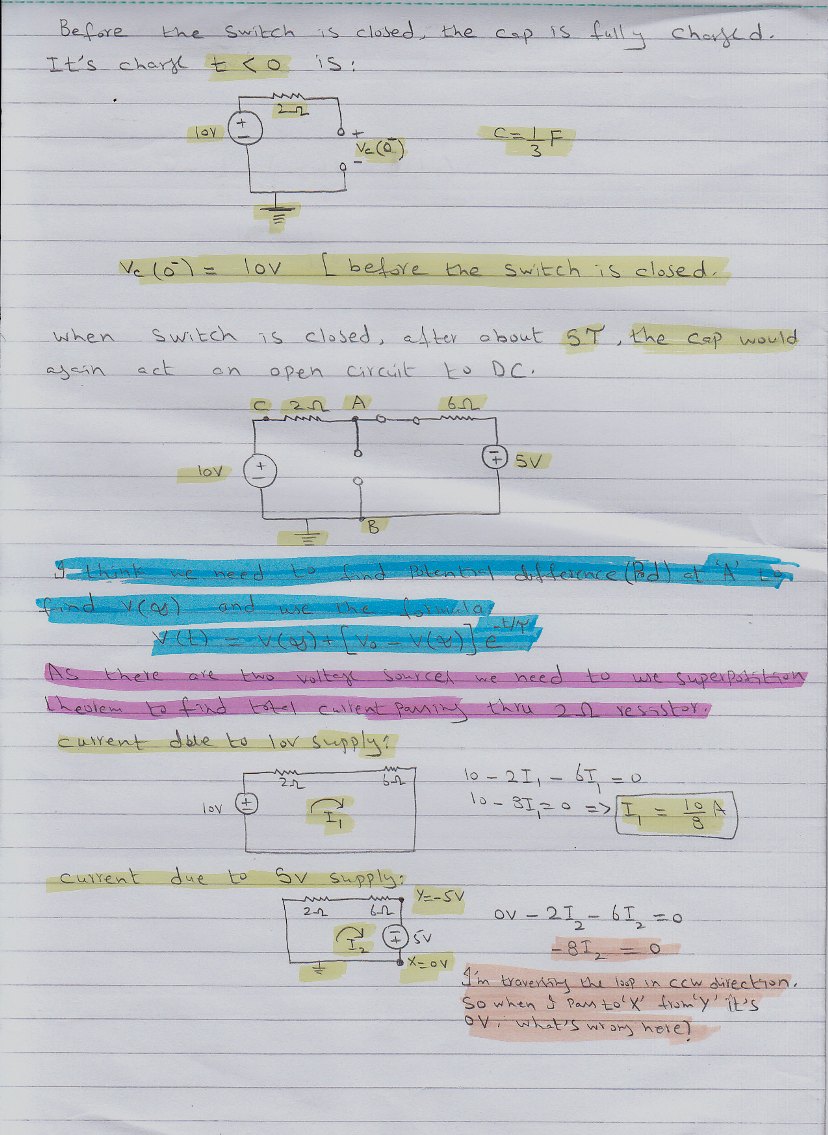 Before the switch is closed, the cap is fully charged.
It's charge t < 0 is:
2Ω
10V
+
Vc(0⁻)
-
C = 1/3 F
Vc(0⁻) = 10V [ before the switch is closed.
when switch is closed, after about 5T, the cap would
again act an open circuit to DC.
C 2Ω A 6Ω
10V
5V
B
I think we need to find potential difference (Pd) at 'A' to
find V(∞) and use the formula
V(t) = V(∞) + [V₀ - V(∞)] e^-t/τ
As there are two voltage sources we need to use superposition
theorem to find total current passing thru 2Ω resistor.
current due to 10V supply:
2Ω 6Ω
10V
I₁
10 - 2I₁ - 6I₁ = 0
10 - 8I₁ = 0 => I₁ = 10/8 A
current due to 5V supply:
Y=-5V
2Ω 6Ω
I₂
5V
X=0V
0V - 2I₂ - 6I₂ = 0
-8I₂ = 0
I'm traversing the loop in ccw direction.
So when I pass to 'X' from 'Y' it's
0V. what's wrong here?